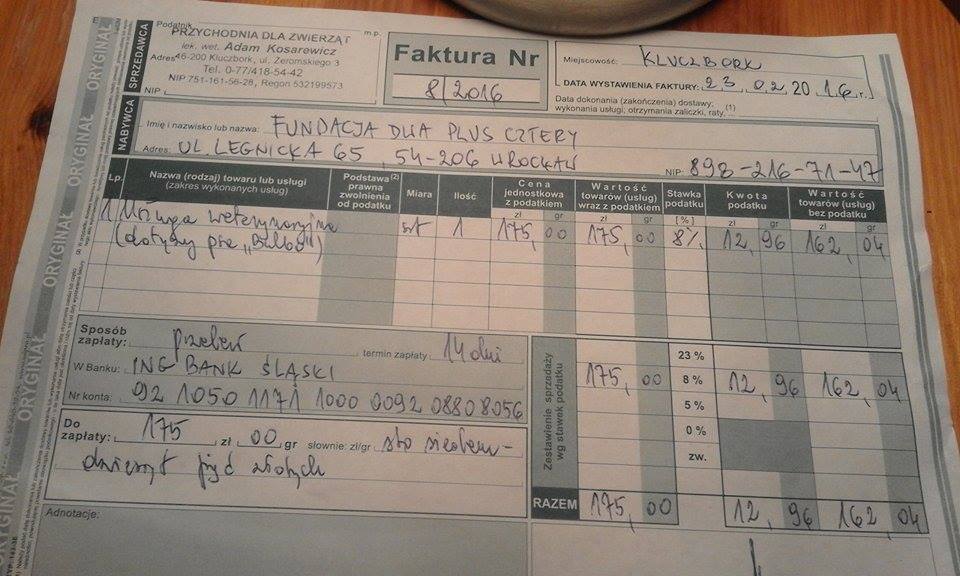 ORYGINAŁ ORYGINAŁ ORYGINAŁ ORYGINAŁ ORYGINAŁ
SPRZEDAWCA
Podatnik
m.p.
PRZYCHODNIA DLA ZWIERZĄT
lek. wet. Adam Kosarewicz
Adres 46-200 Kluczbork, ul. Żeromskiego 3
Tel. 0-77/418-54-42
NIP 751-161-56-28, Regon 532199573
NIP
Faktura Nr
8/2016
Miejscowość: KLUCZBORK
DATA WYSTAWIENIA FAKTURY: 23.02.2016 r.
Data dokonania (zakończenia) dostawy;
wykonania usługi; otrzymania zaliczki, raty, (1)
NABYWCA
Imię i nazwisko lub nazwa: FUNDACJA DWA PLUS CZTERY
Adres: UL. LEGNICKA 65, 54-206 WROCŁAW
NIP: 898-216-71-47
Lp. Nazwa (rodzaj) towaru lub usługi (zakres wykonanych usług) Podstawa (2) prawna zwolnienia od podatku Miara Ilość Cena jednostkowa z podatkiem Wartość towarów (usług) wraz z podatkiem Stawka podatku Kwota podatku Wartość towarów (usług) bez podatku
zł gr zł gr [%] zł gr zł gr
1 Usługa weterynaryjna szt 1 175,00 175,00 8% 12,96 162,04
(dotyczy psa „
Sposób zapłaty: przelew termin zapłaty 14 dni
W Banku: ING BANK ŚLĄSKI
Nr konta: 92 1050 1171 1000 0092 0880 8056
Do zapłaty: 175 zł 00 gr słownie: zł/gr sto siedem-
dziesiąt pięć złotych
Adnotacje:
Zestawienie sprzedaży wg stawek podatku
23 %
175,00 8 % 12,96 162,04
5 %
0 %
zw.
RAZEM 175,00 12,96 162,04